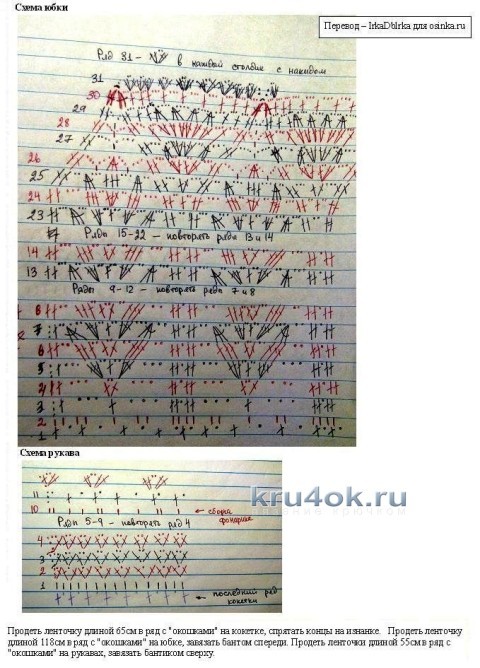 Схема юбки
Перевод – IrkaDbIrka для osinka.ru
Ряд 31 – в каждый столбик с накидом
31
30
29
28
27
26
25
24
23
Ряды 15-22 – повторять ряды 13 и 14
14
13
Ряды 9-12 – повторять ряды 7 и 8
8
7
6
5
4
3
2
1
Схема рукава
11
10
← сборка фонарика
Ряды 5-9 – повторять ряд 4
4
3
2
1
← последний ряд кокетки
kru4ok.ru
Продеть ленточку длиной 65см в ряд с "окошками" на кокетке, спрятать концы на изнанке. Продеть ленточку
длиной 118см в ряд с "окошками" на юбке, завязать бантом спереди. Продеть ленточки длиной 55см в ряд с
"окошками" на рукавах, завязать бантиком сверху.